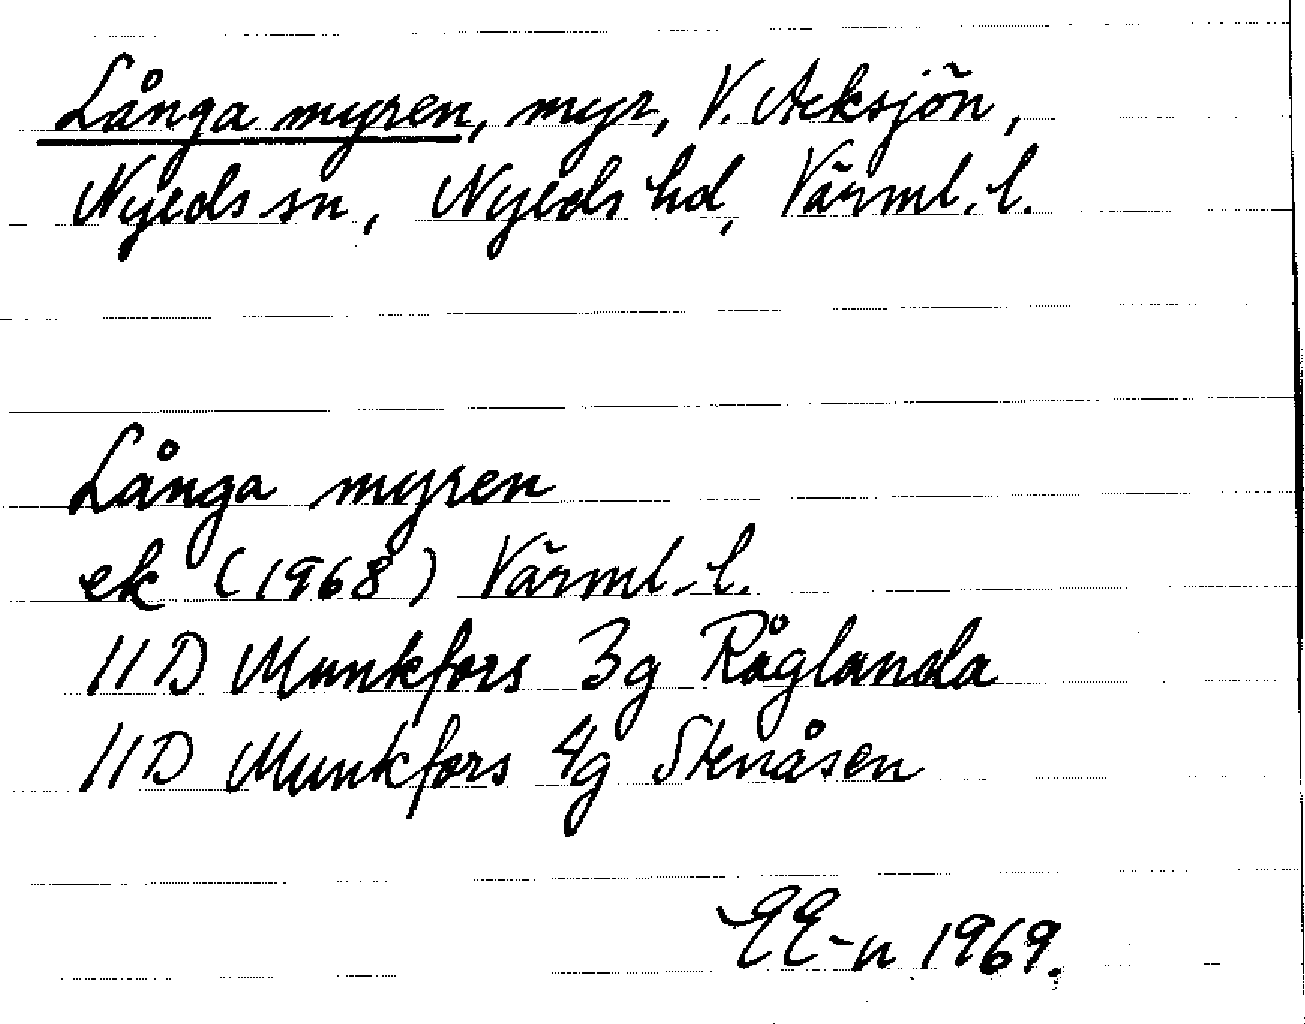 Långa myren, myr, V. Acksjön,
Nyeds sn, Nyeds hd, Värml. l.
Långa myren
ek (1968) Värml. l.
11D Munkfors 3g Råglanda
11D Munkfors 4g Stenåsen
EE-n 1969.